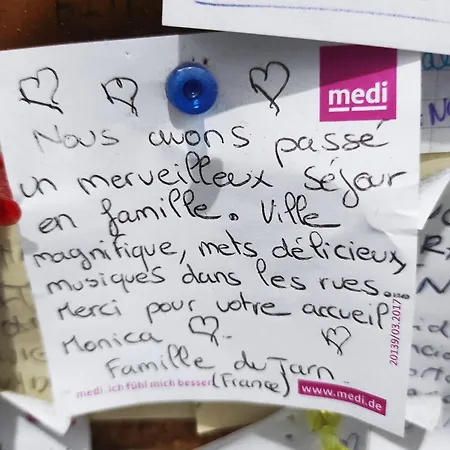 medi
Nous avons passé
un merveilleux séjour
en famille. Ville
magnifique, mets délicieux,
musiques dans les rues....
Merci pour votre accueil
Monica
Famille du Tarn
(France)
medi. ich fühl mich besser
www.medi.de
20139/03.2017